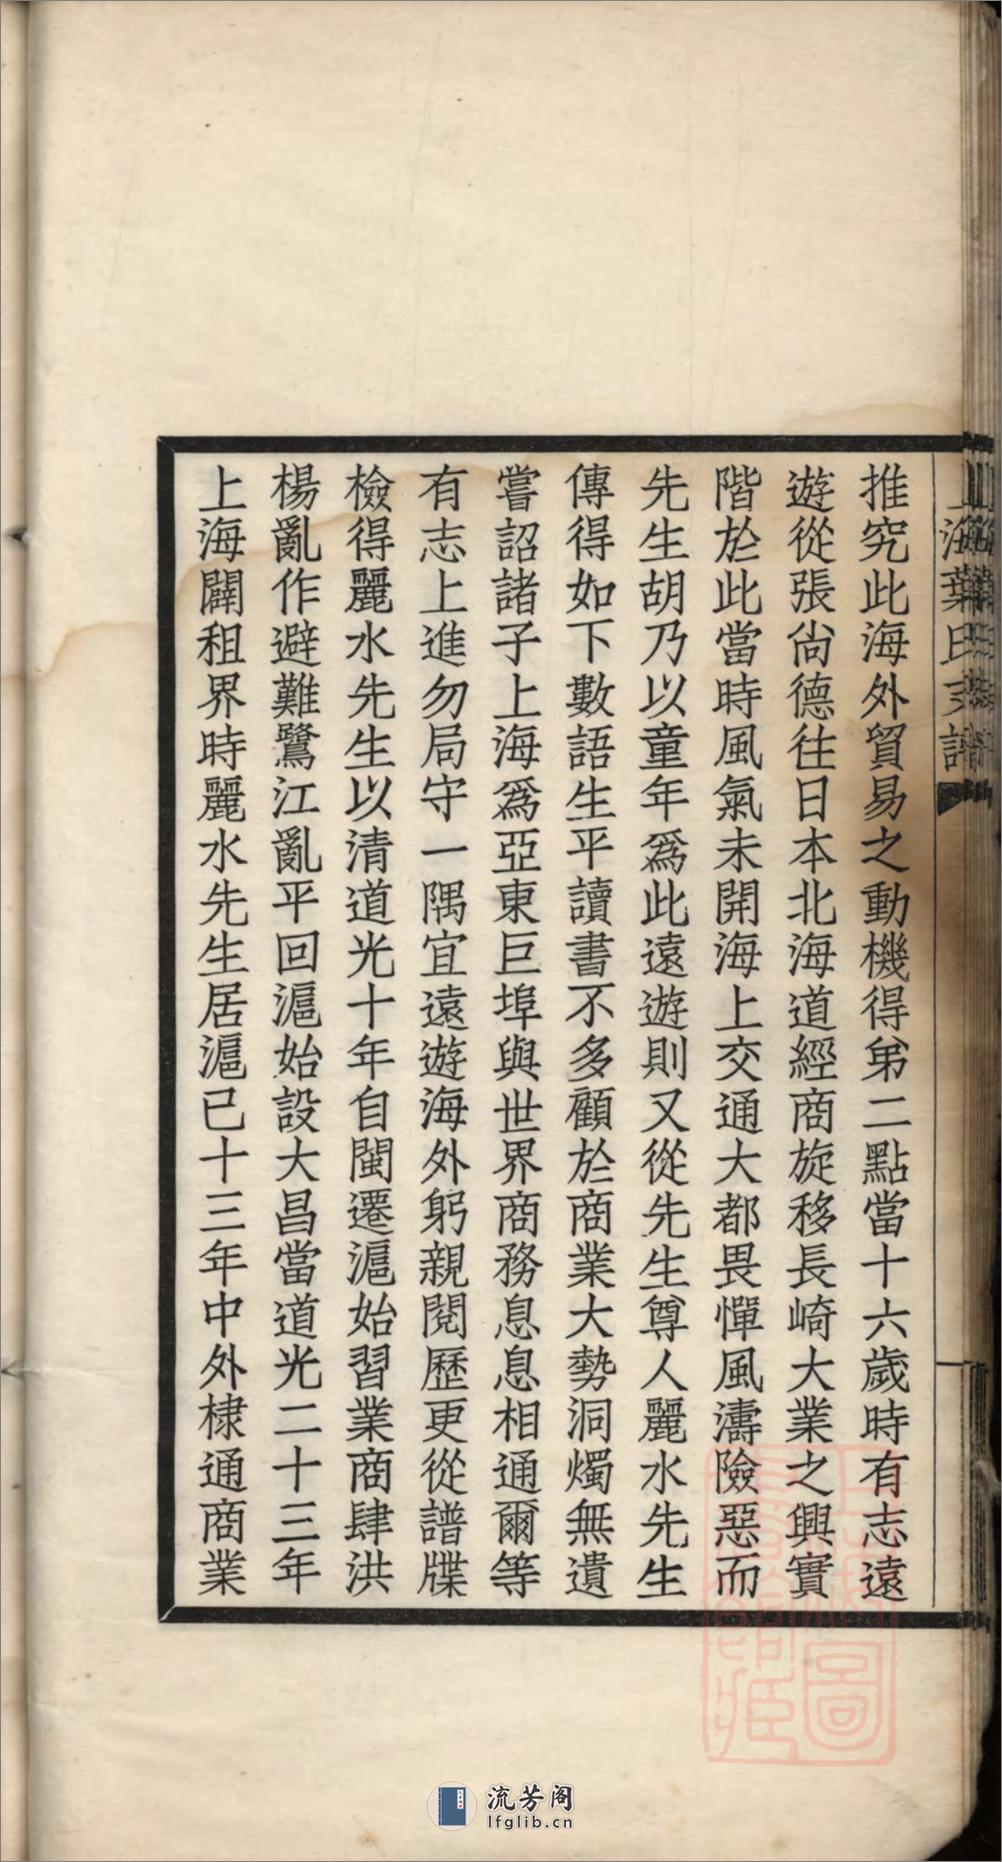 上海葉氏支譜
推究此海外貿易之動機得弟二點當十六歲時有志遠
遊從張尙德往日本北海道經商旋移長崎大業之興實
階於此當時風氣未開海上交通大都畏憚風濤險惡而
先生胡乃以童年爲此遠遊則又從先生尊人麗水先生
傳得如下數語生平讀書不多顧於商業大勢洞燭無遺
嘗詔諸子上海爲亞東巨埠與世界商務息息相通爾等
有志上進勿局守一隅宜遠遊海外躬親閱歷更從譜牒
檢得麗水先生以清道光十年自閩遷滬始習業商肆洪
楊亂作避難鷺江亂平回滬始設大昌當道光二十三年
上海闢租界時麗水先生居滬已十三年中外棣通商業
上海圖書館藏
流芳阁
lfglib.cn